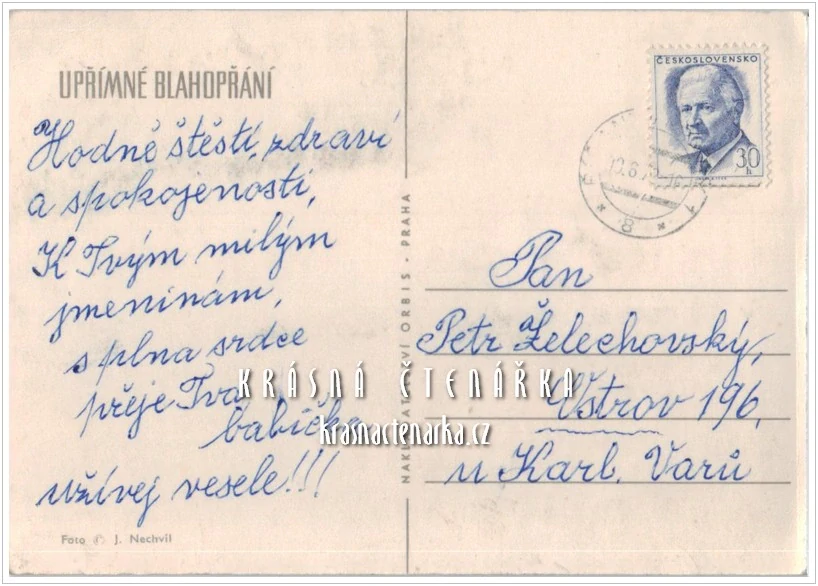 UPŘÍMNÉ BLAHOPŘÁNÍ
Hodně štěstí, zdraví
a spokojenosti,
K Tvým milým
jmeninám,
s plna srdce
přeje Tvá
babička
užívej vesele!!!
Foto © J. Nechvíl
NAKLADATELSTVÍ ORBIS - PRAHA
ČESKOSLOVENSKO
30
h
8
1
Pan
Petr Želechovský,
Ostrov 196,
u Karl. Varů
KRÁSNÁ ČTENÁŘKA
krasnactenarka.cz